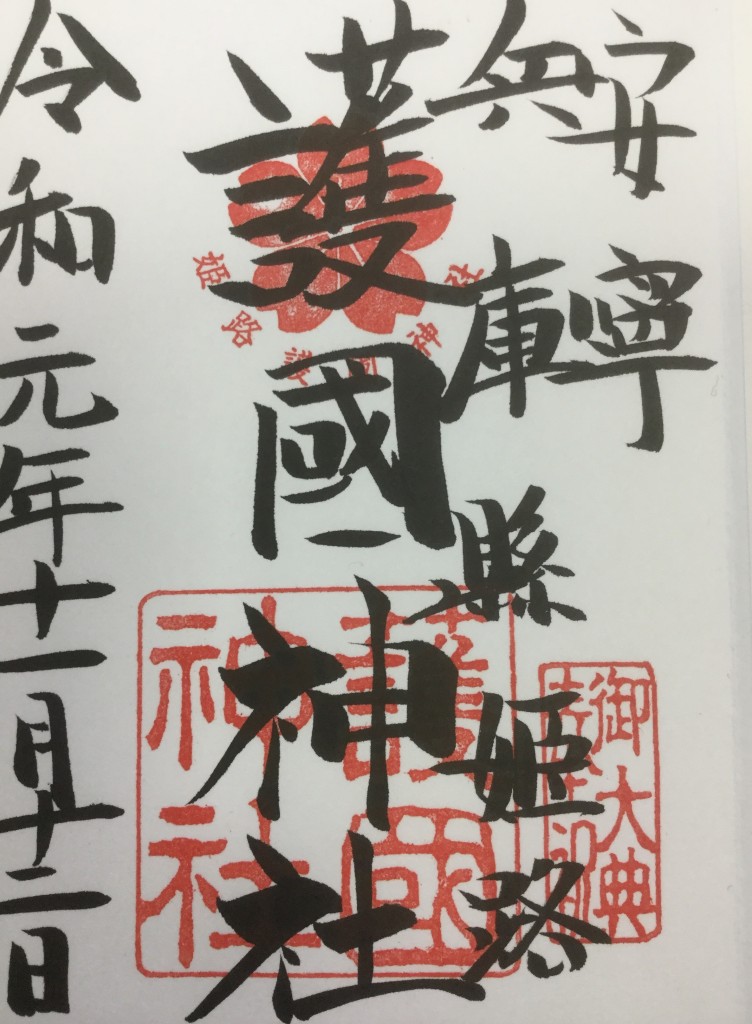 安寧
兵庫縣姫路
護國神社
令和元年十一月十二日
御大典
姫路護國
護國
神社